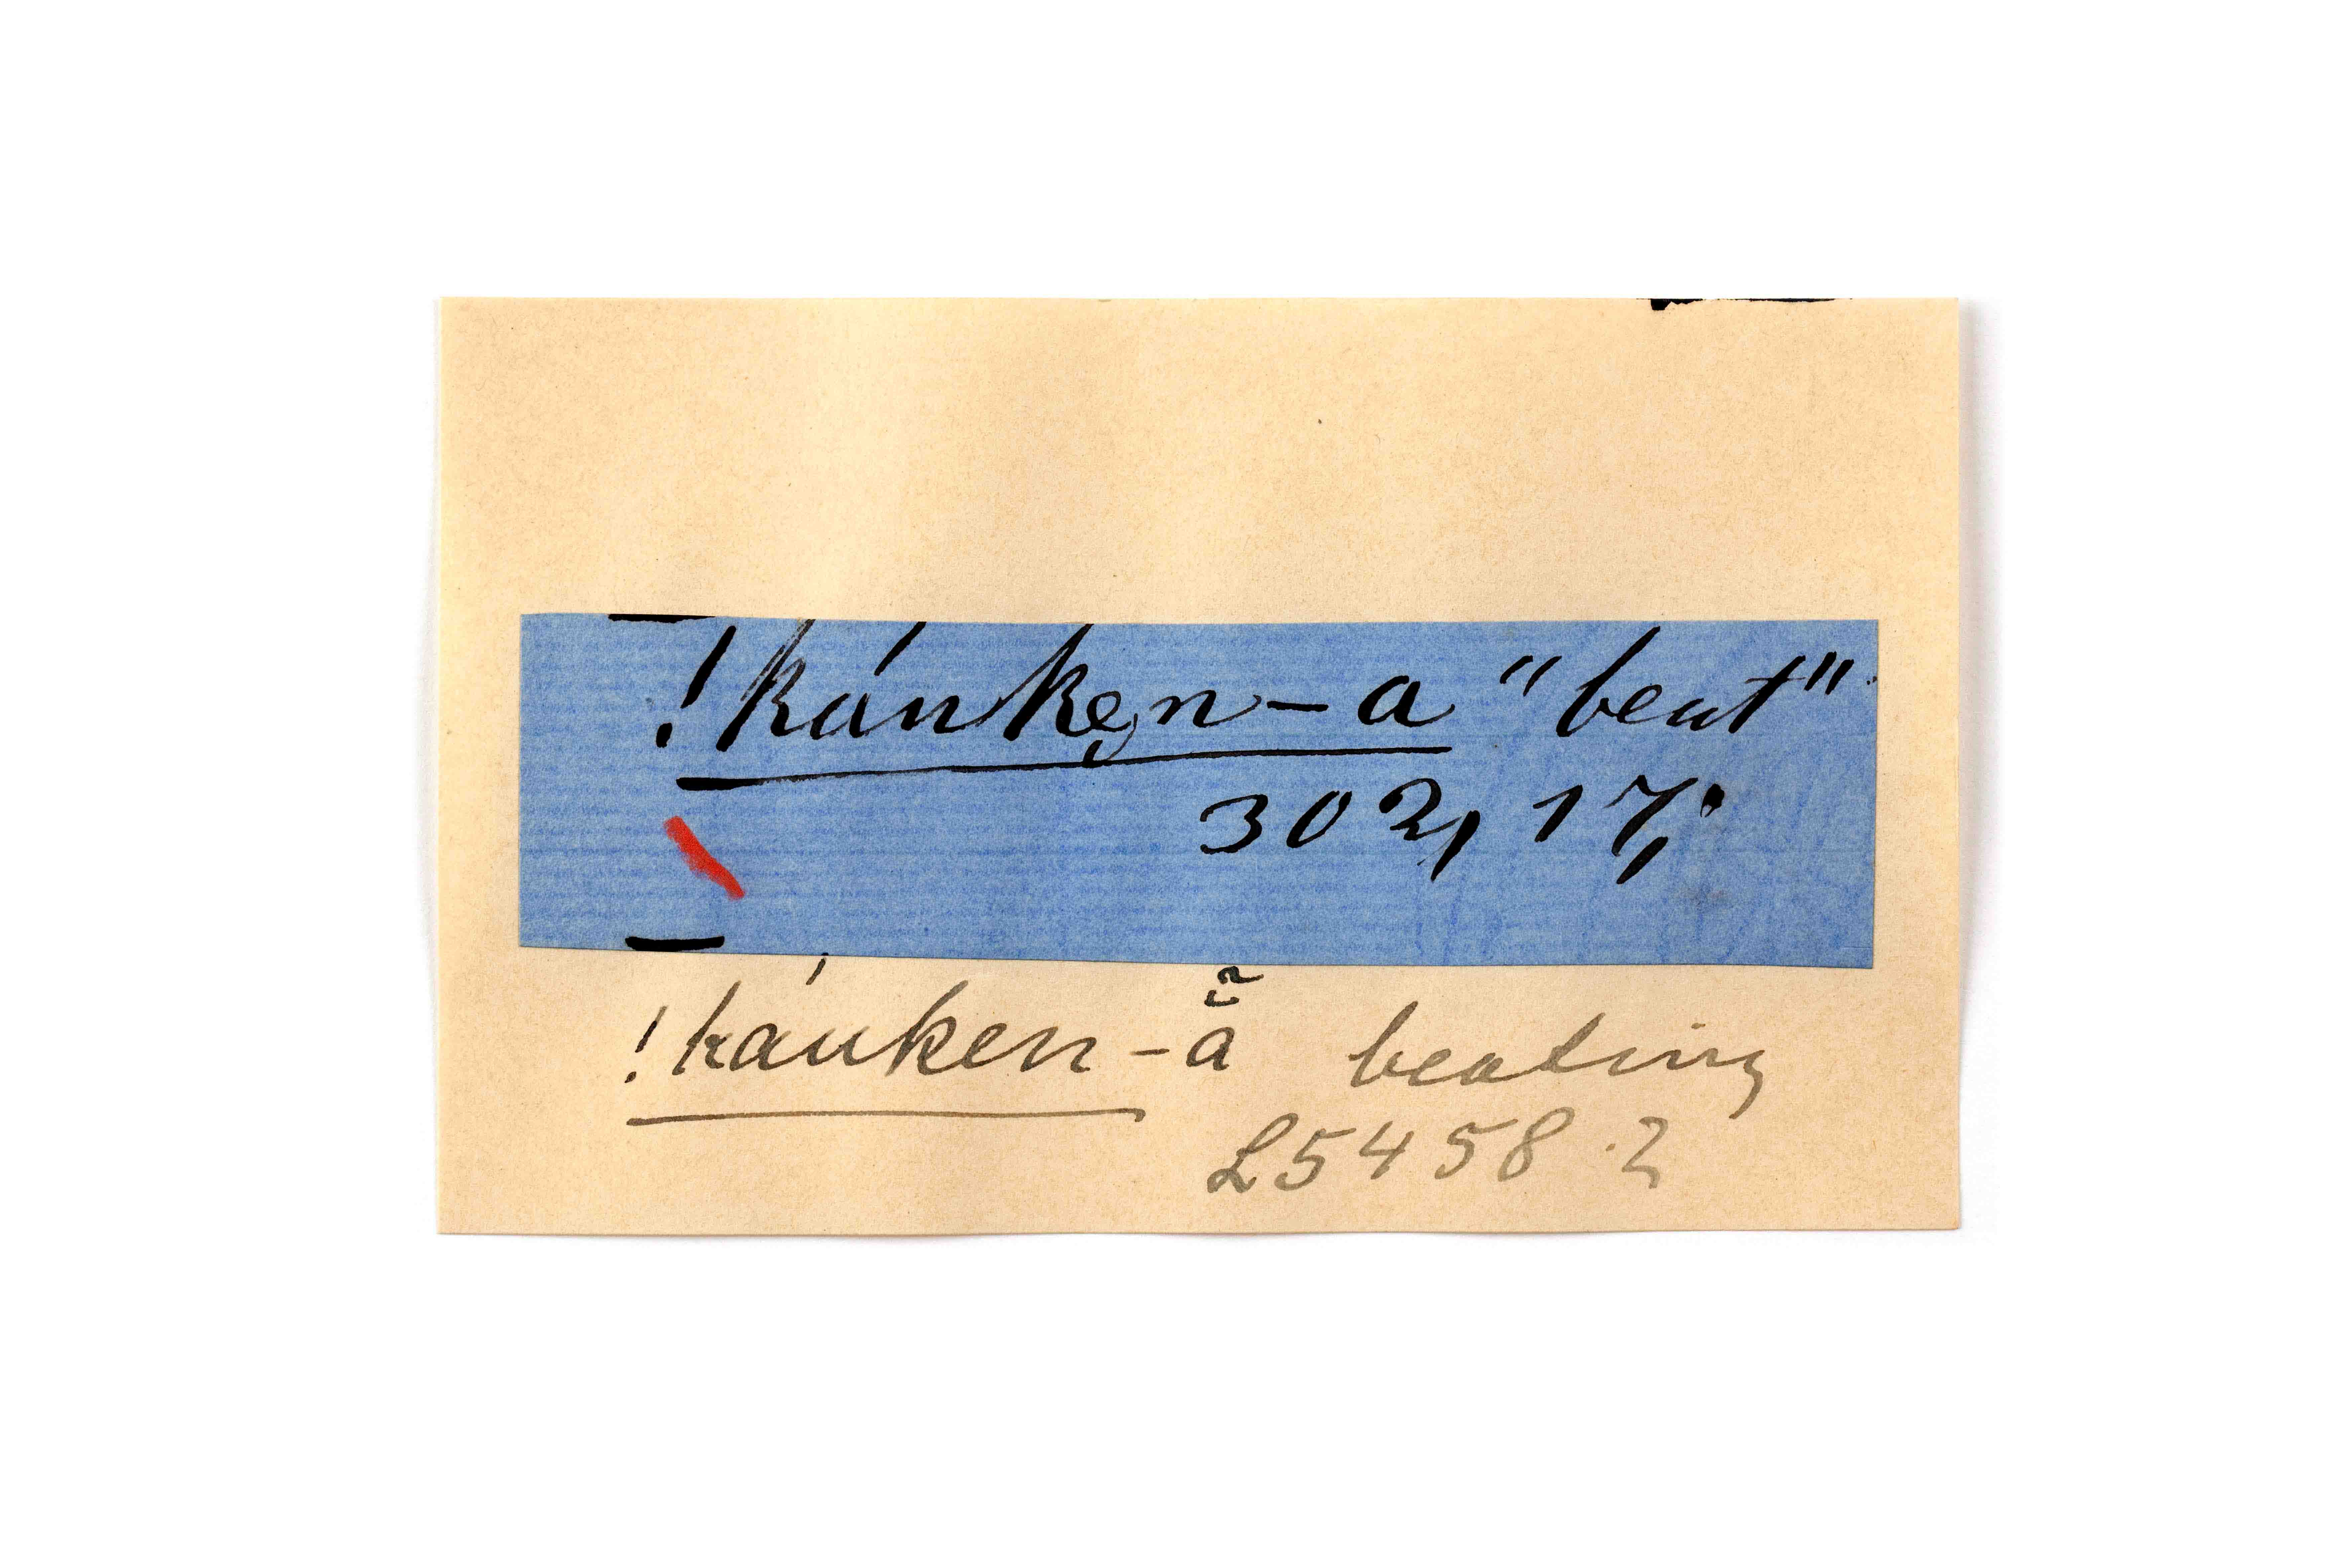 !káuken̦-a "beat"
302, 17;
!káuken-ã̆ beating
L5458.2